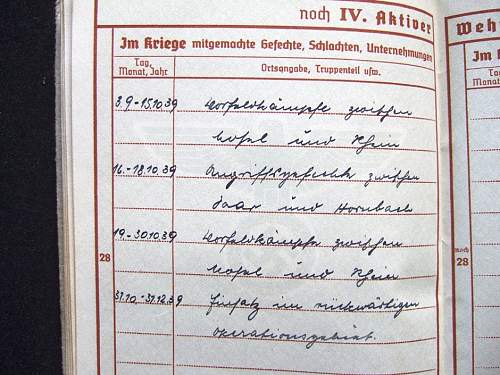 noch IV. Aktiver
Im Kriege mitgemachte Gefechte, Schlachten, Unternehmungen
Tag, Monat, Jahr
Ortsangabe, Truppenteil usw.
3.9.-15.10.39 Vorfeldkämpfe zwischen
Mosel und Rhein
16.-18.10.39 Angriffsgefechte zwischen
Saar und Hornbach
19.-30.10.39 Vorfeldkämpfe zwischen
Mosel und Rhein
31.10.-31.12.39 Einsatz im rückwärtigen
Operationsgebiet.
28
Weh
Im K
Tag,
Monat, J
noch
28